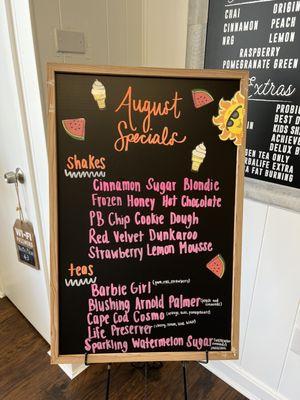 August
Specials
Shakes
Cinnamon Sugar Blondie
Frozen Honey Hot Chocolate
PB Chip Cookie Dough
Red Velvet Dunkaroo
Strawberry Lemon Mousse
teas
Barbie Girl
Blushing Arnold Palmer
Cape Cod Cosmo
Life Preserver
Sparkling Watermelon Sugar
WI-FI
CHAI
ORIGIN
CINNAMON
PEACH
NRG
LEMON
RASPBERRY
POMEGRANATE
Extras
PROBI
BEST D
KIDS
ACHIEV
GREEN TEA ONLY
FAT BURN